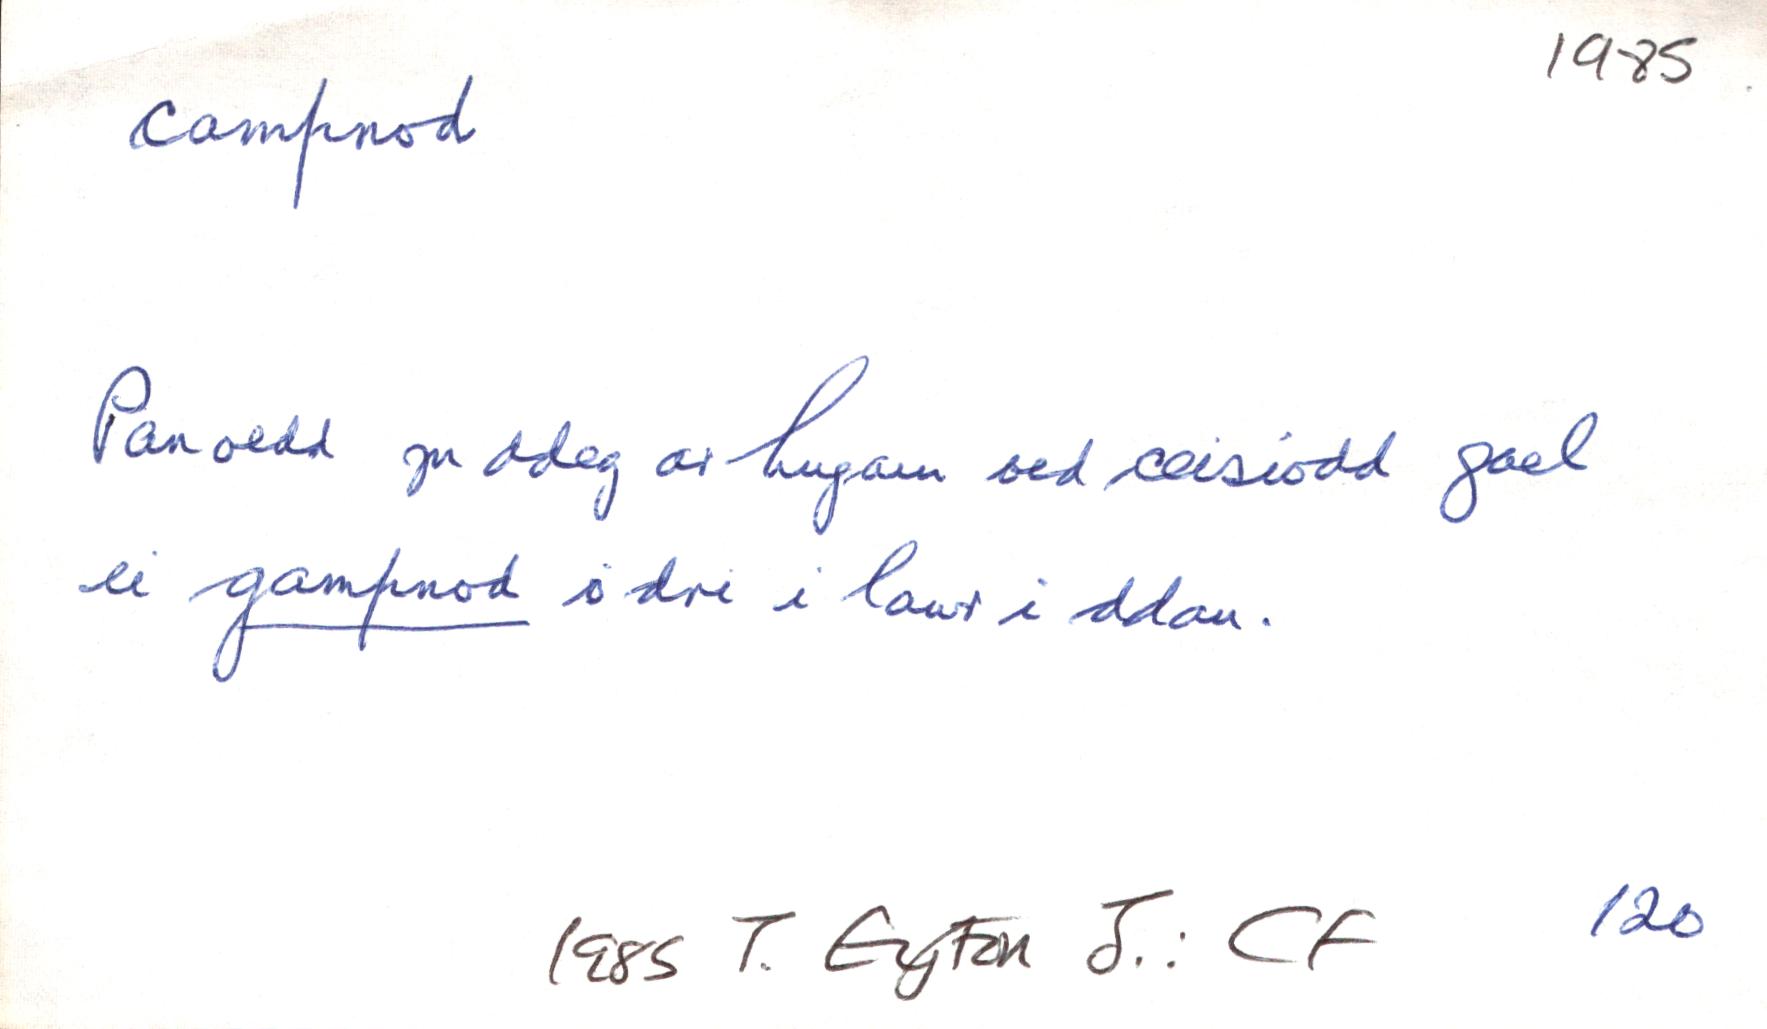 1985
campnod
Pan oedd yn ddeg ar hugain oed ceisiodd gael
ei gampnod o dri i lawr i ddau.
1985 T. Eyton J.: CF 120